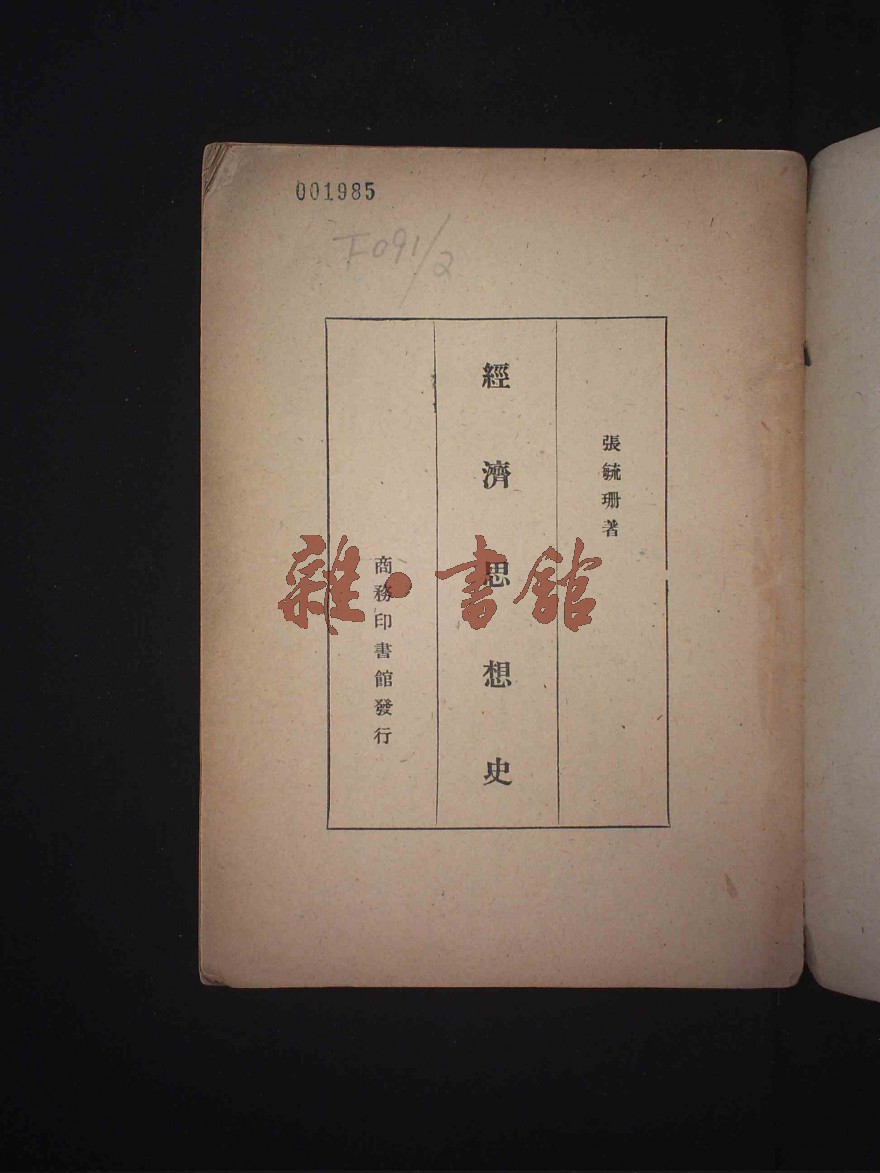 001985
F091/2
張毓珊著
經濟思想史
商務印書館發行
雜·書館